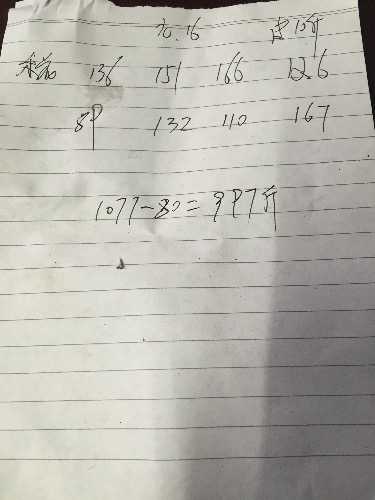 16 皮10斤
136 151 166 126
89 132 110 167
1077-80=997斤